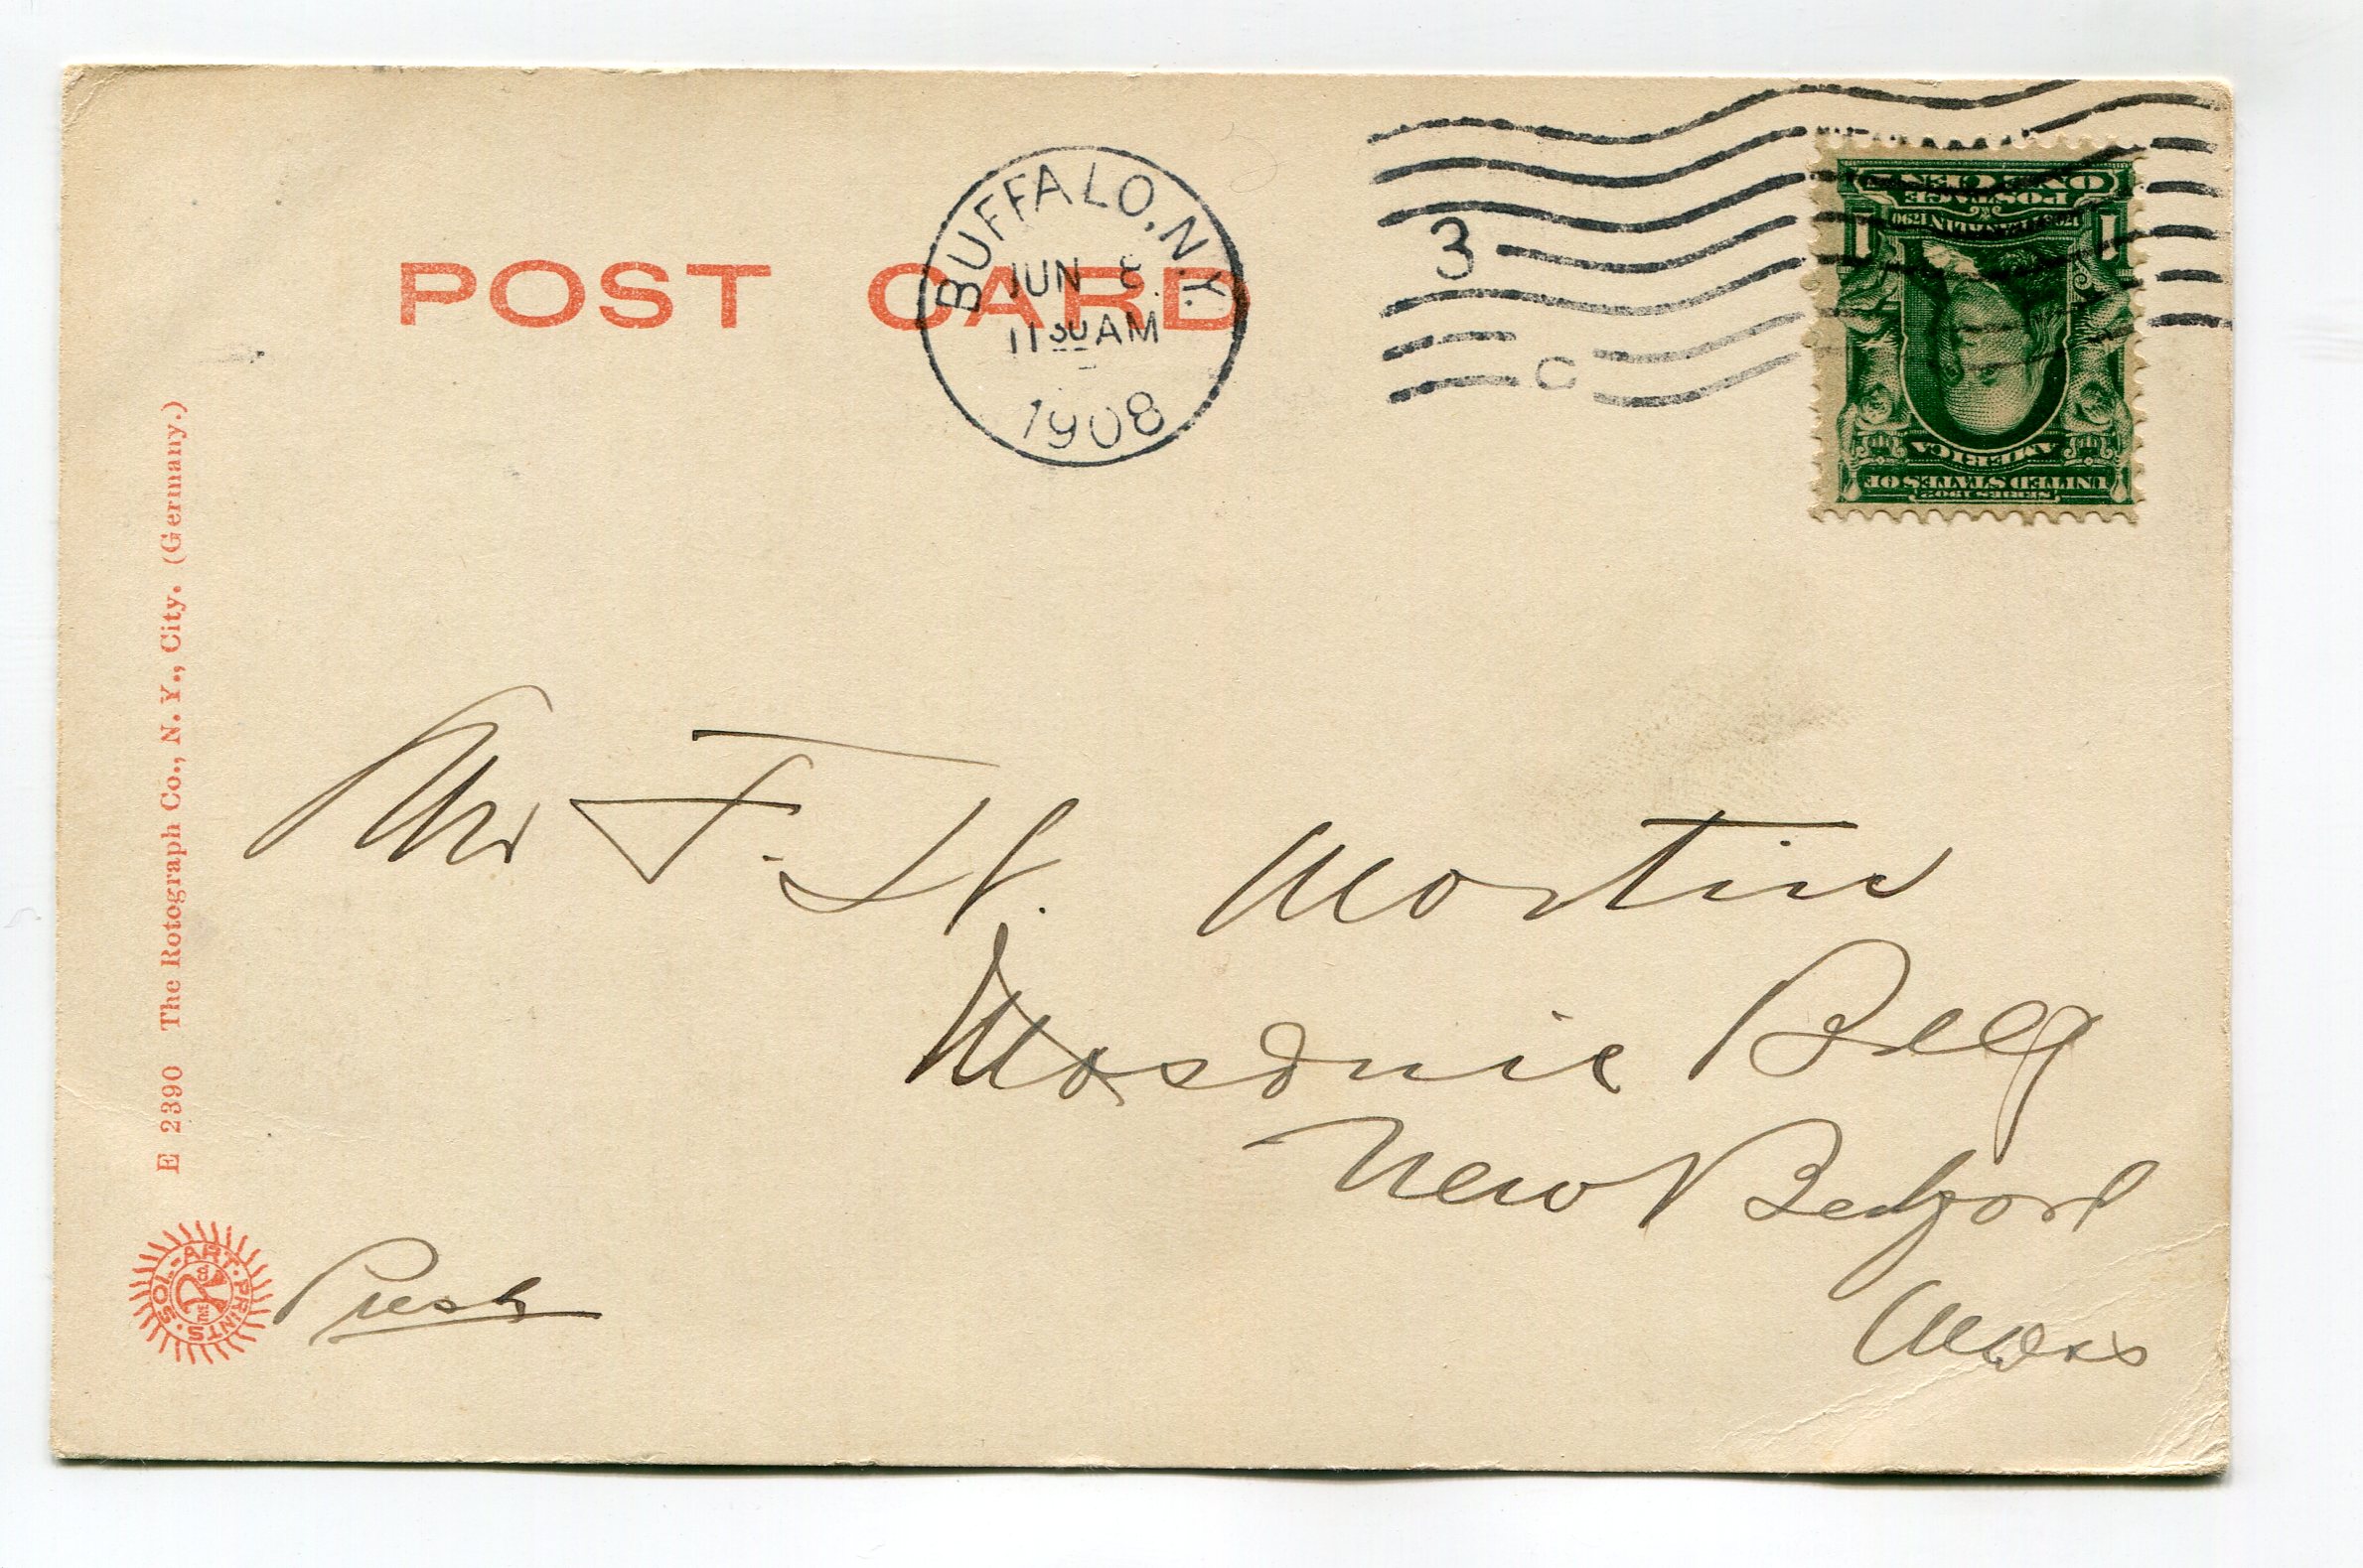 POST CARD
BUFFALO, N.Y.
JUN 8
11 30 AM
1908
3
C
ONE CENT
POSTAGE
1732 FRANKLIN 1790
1 1
AMERICA
UNITED STATES OF
SERIES 1902
Mr F. H. Martin
Masonic Bldg
New Bedford
Mass
E 2390 The Rotograph Co., N. Y., City. (Germany.)
SOL-ART PRINTS